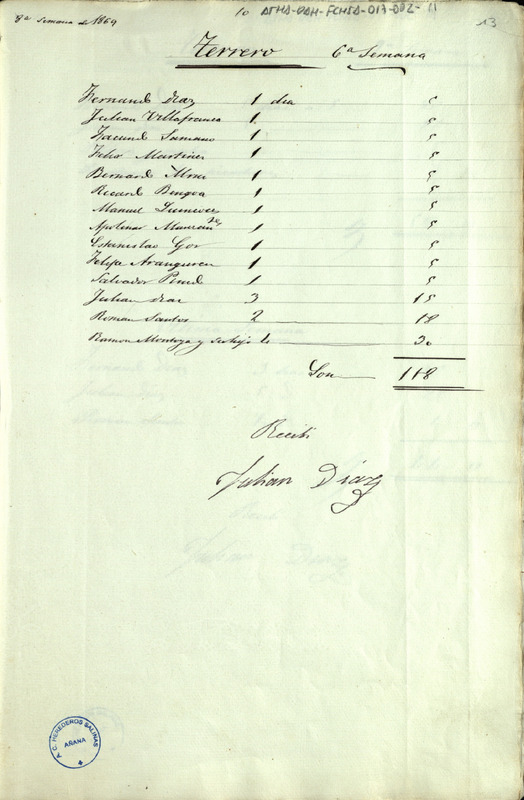 8ª Semana de 1869
10 ATHA-DAH-FCHSA-017-002-11
13
Terrero 6ª Semana
Fernand Diaz 1 dia 5
Julian Villafranca 1 5
Facund Samano 1 5
Felix Martinez 1 5
Bernard 1 5
Ricard Bengoa 1 5
Manuel Jimenez 1 5
Apolinar 1 5
Estanislao 1 5
Felipe Aranguren 1 5
Salvador Pined 1 5
Julian Diaz 3 15
Roman Santos 2 18
Ramon Montoya y su hijo 30
Son 118
Recibi
Julian Diaz
A.C. HEREDEROS SALINAS
AÑANA